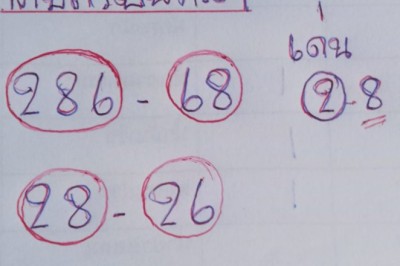 เด่น
286 - 68
2-8
28 - 26